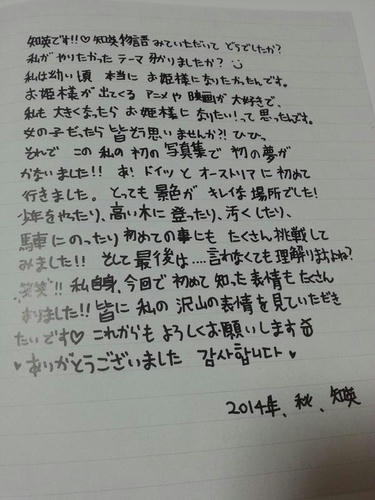 知英です!!♡ 知英物語 みていただいて どうでしたか?
私が やりたかった テーマ 分かりましたか?
私は幼い頃 本当に お姫様になりたかったんです。
お姫様が出てくる アニメや 映画が 大好きで、
私も 大きくなったら お姫様に なりたい!って 思ったんです。
女の子だったら 皆そう思いませんか?! ひひ。
それで この 私の 初の 写真集で 初の夢が
かないました!! あ! ドイツと オーストリアに 初めて
行きました。とっても 景色が キレイな 場所でした!
少年をやったり、高い木に 登ったり、汚くしたり、
馬車にのったり 初めての事にも たくさん 挑戦して
みました!! そして 最後は.... 話さなくても 理解りますよね?
笑笑!! 私自身、今回で 初めて 知った 表情も たくさん
ありました!! 皆に 私の 沢山の 表情を 見ていただき
たいです♡ これからも よろしくお願いします
♥ありがとうございました 감사합니다♥
2014年、秋、知英